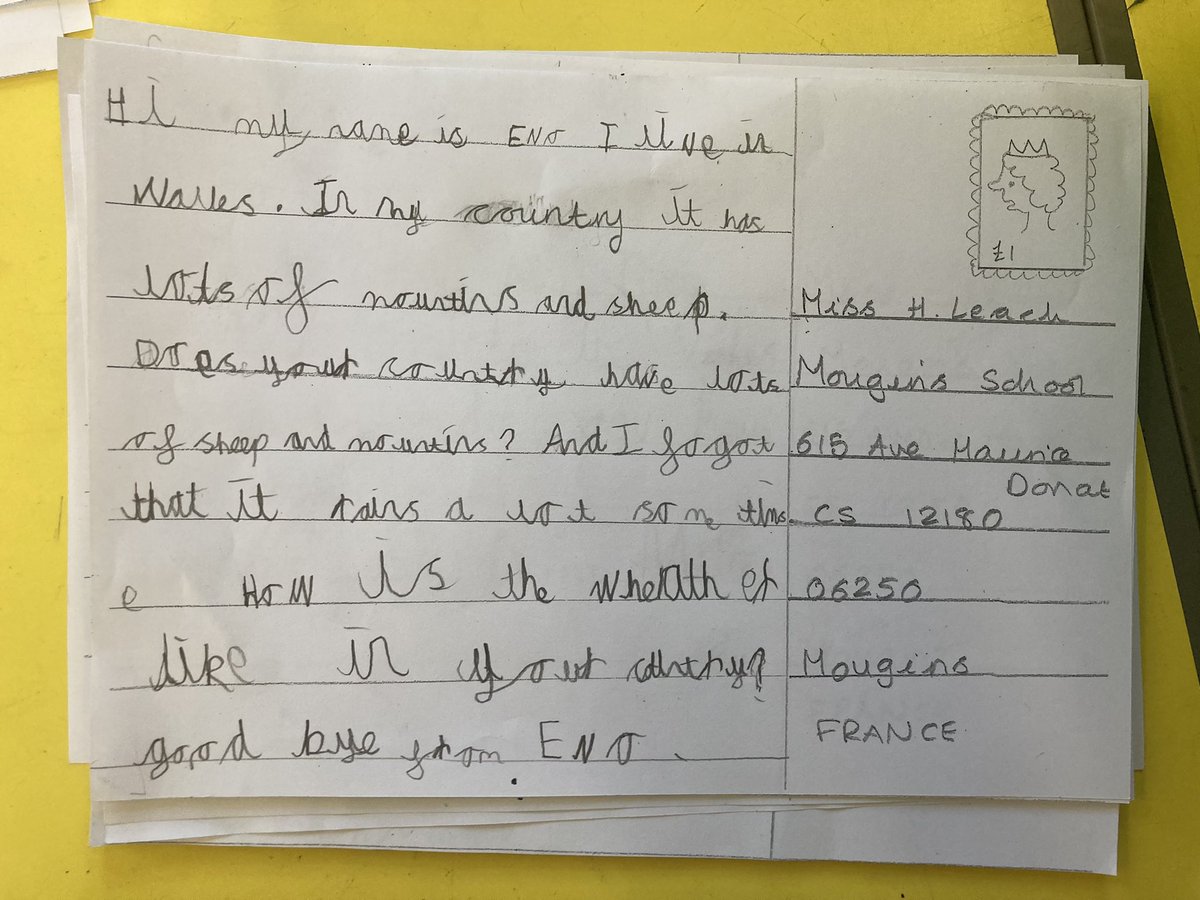 Hi my name is ENO I live in
Wales. In my country it has
lots of mountins and sheep.
Does your country have lots
of sheep and mountins? And I fogot
that it rains a lot some tims
e How is the wherather
like in your cuntry?
good bye from ENO.
£1
Miss H. Leach
Mougins School
615 Ave Maurice
Donat
CS 12180
06250
Mougins
FRANCE